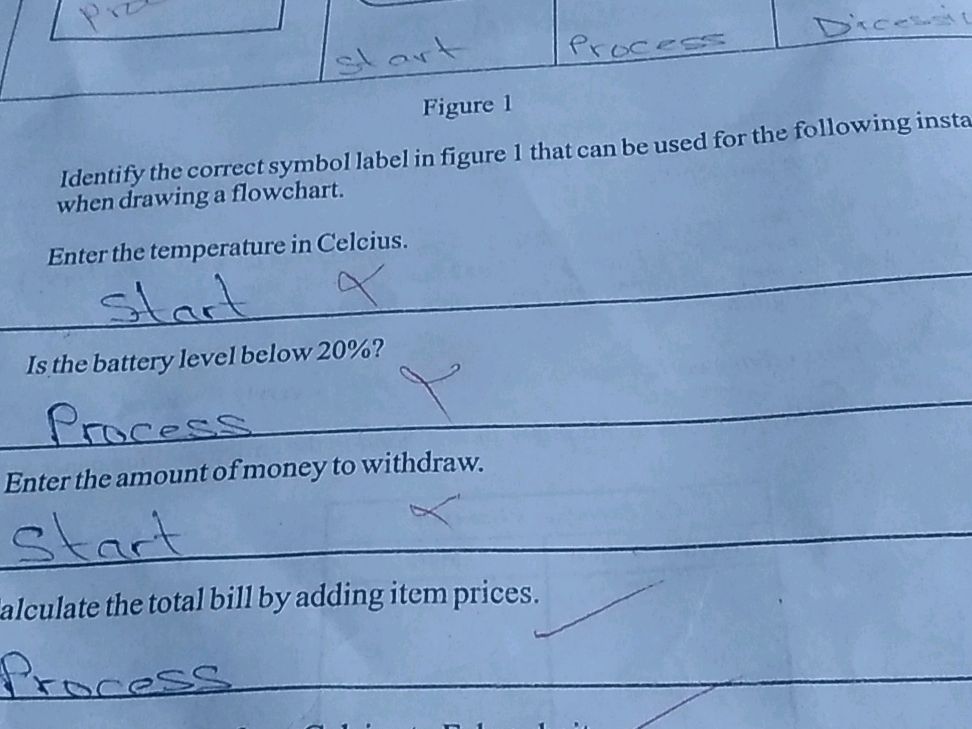 Start Process
Figure 1
Identify the correct symbol label in figure 1 that can be used for the following insta
when drawing a flowchart.
Enter the temperature in Celcius.
Start
Is the battery level below 20%?
Process
Enter the amount of money to withdraw.
Start
alculate the total bill by adding item prices.
Process